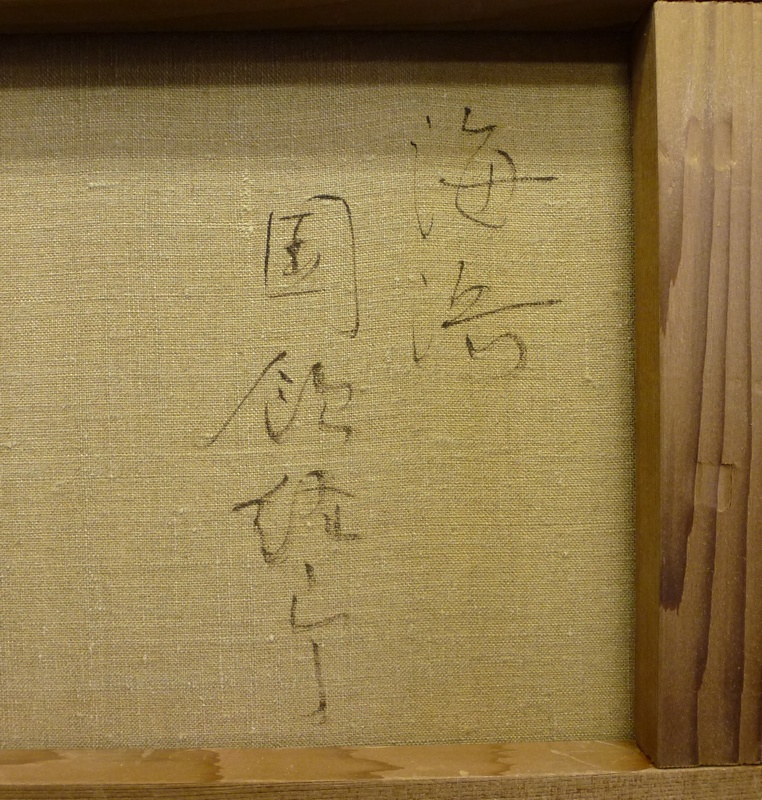 海浜
国領経郎